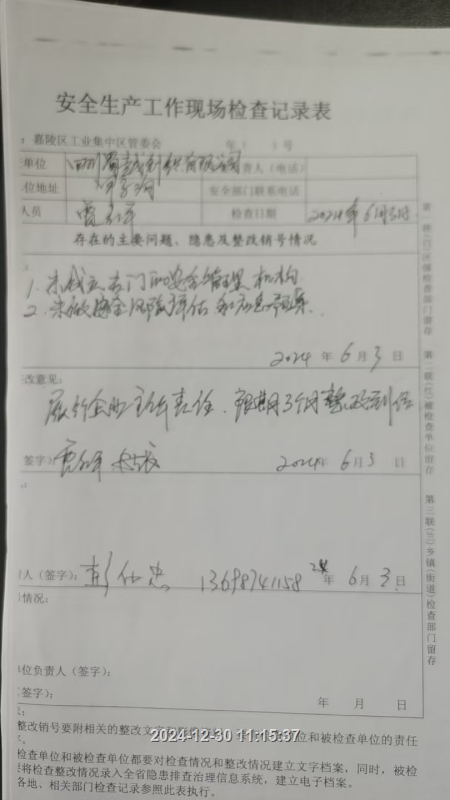 安全生产工作现场检查记录表
：嘉陵区工业集中区管委会 年（ ）号
单位 四川 有限公司 责人（电话）
位地址 安全部门联系电话
人员 检查日期 2024年6月3日
存在的主要问题、隐患及整改销号情况
1. 未成立专门的安全管理机构
2. 未做安全风险评估和应急预案.
2024年6月3日
改意见：
履行企业主体责任、限期3个月整改到位
签字） 2024年6月3日
人（签字）：彭仕忠 13698741158 24年6月3日
情况：
单位负责人（签字）：
签字）：
年 月 日
2024-12-30 11:15:37
整改销号要附相关的整改文 位和被检查单位的责任
检查单位和被检查单位都要对检查情况和整改情况建立文字档案，同时，被检
要将检查整改情况录入全省隐患排查治理信息系统，建立电子档案。
各地、相关部门检查记录参照此表执行。
第一联（白）区级检查部门留存
第二联（红）被检查单位留存
第三联（三）乡镇（街道）检查部门留存